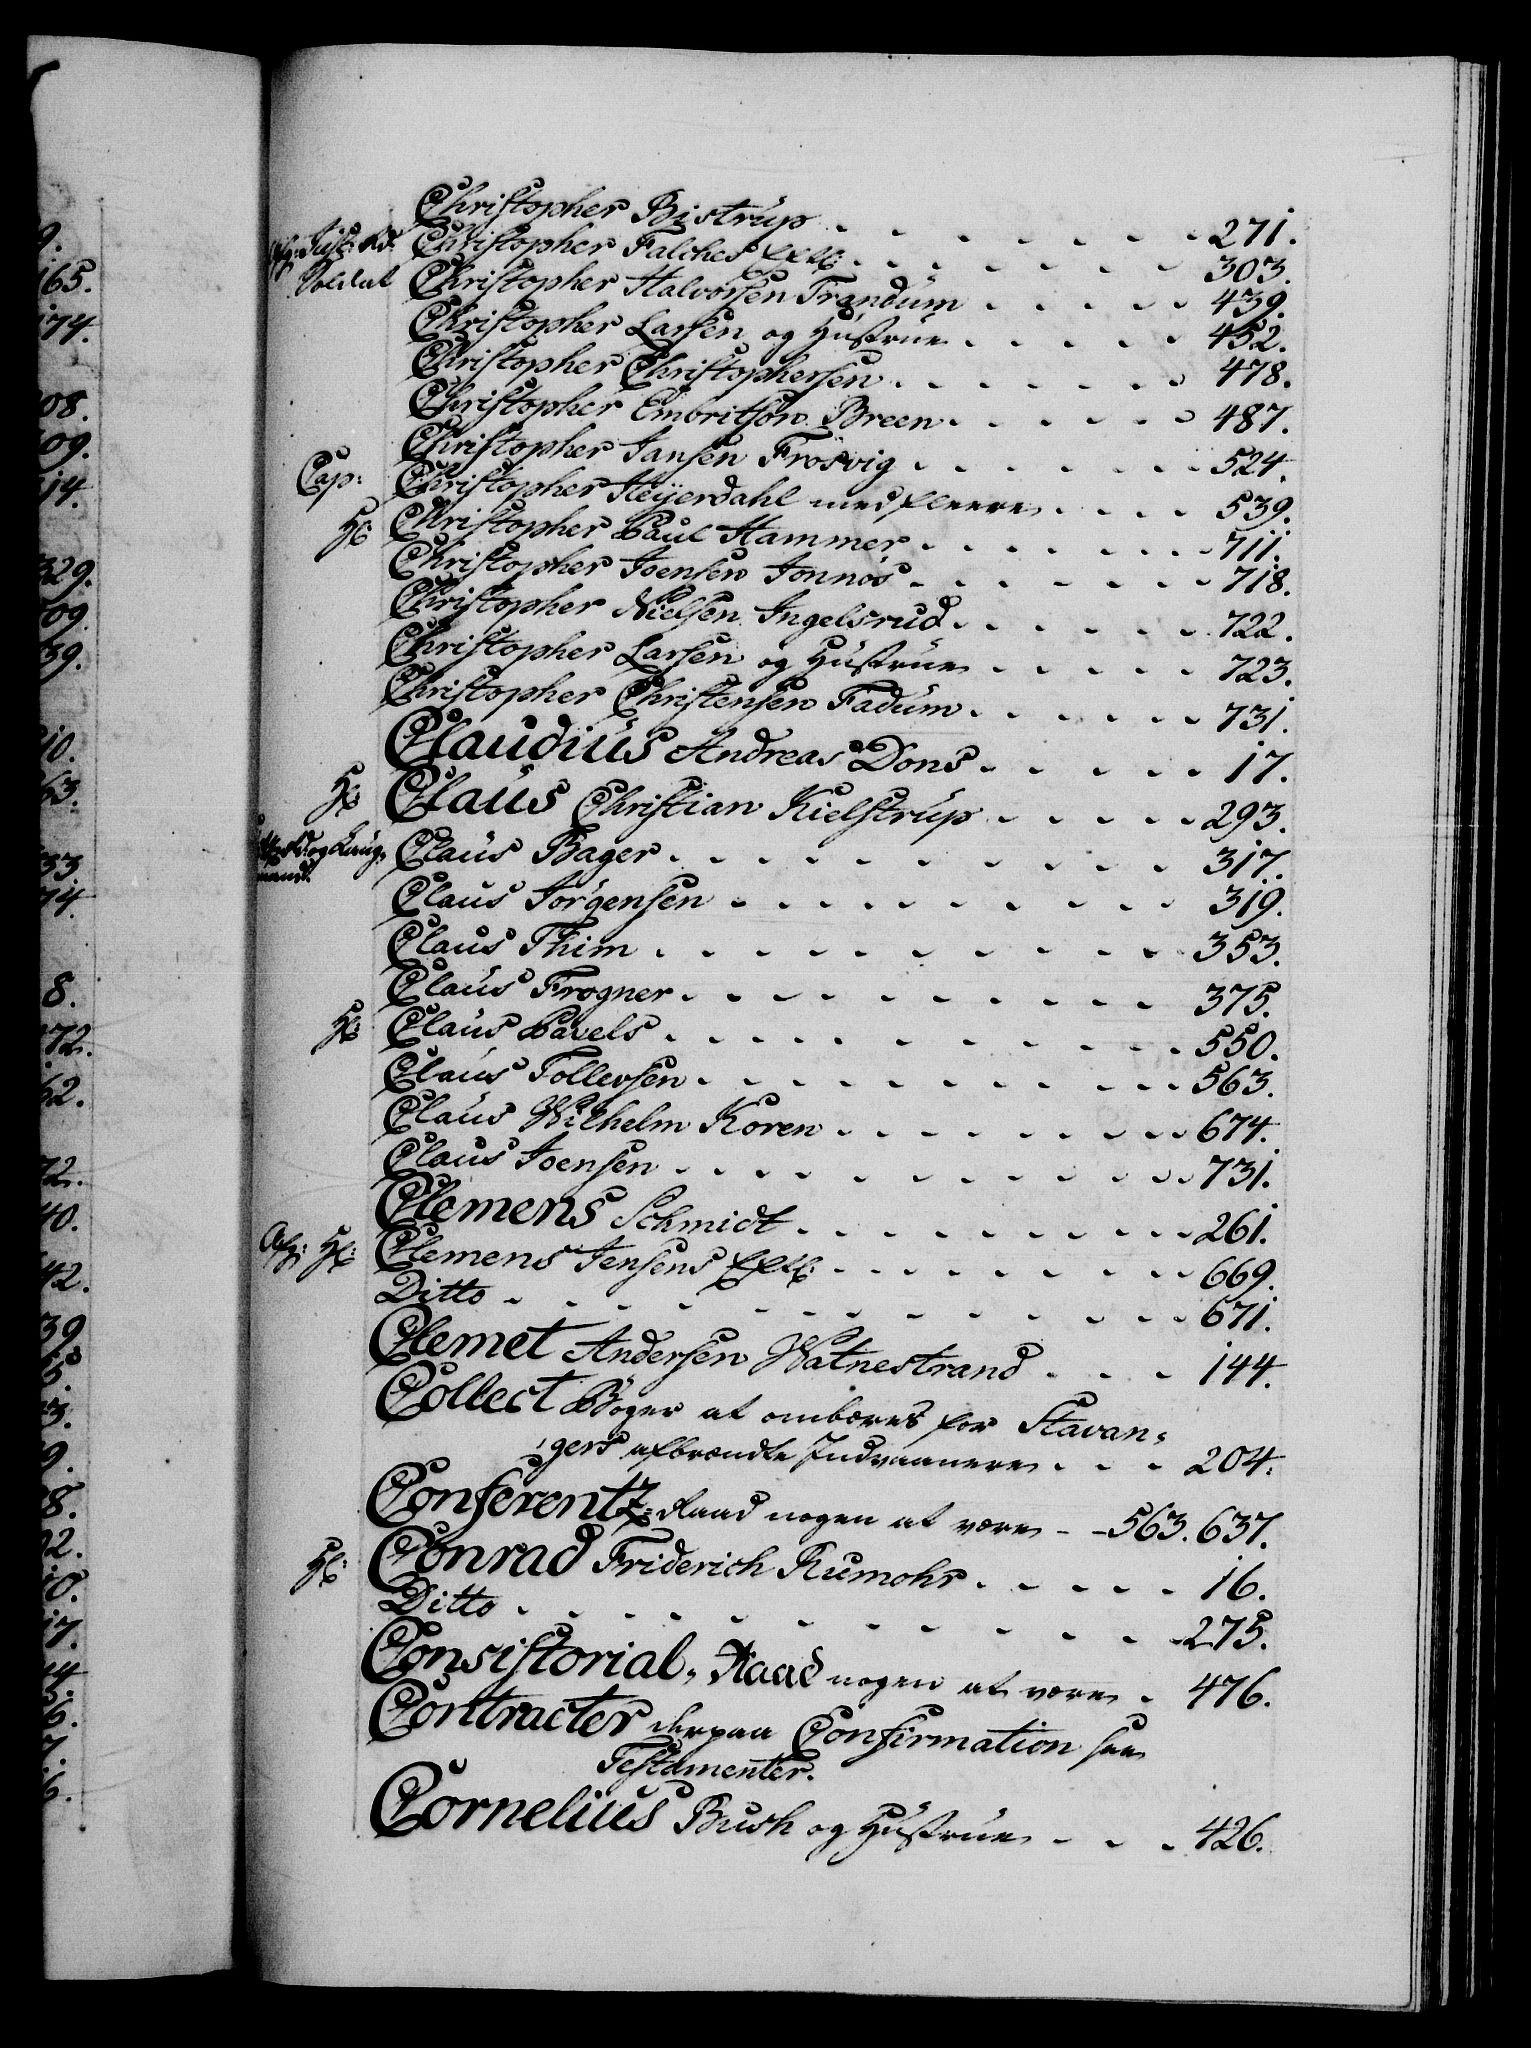 Christopher Bistrup - - - - - - - 271.
Afg: Just: Rd: Christopher Falches - - - - - - - 303.
Soldat Christopher Halvorsen Trandum - - - - - 439.
Christopher Larsen og Hustrue - - - - - 452.
Christopher Christophersen - - - - - - 478.
Christopher Embritson Breen - - - - - - 487.
Christopher Jansen Frosvig - - - - - - - 524.
Cap: Christopher Heyerdahl med fleere - - - - 539.
Hr: Christopher Paul Hammer - - - - - - - 711.
Christopher Joensen Jonnös - - - - - - - 718.
Christopher Nielsen Ingelsrud - - - - - - 722.
Christopher Larsen og Hustrue - - - - - 723.
Christopher Christensen Fadum - - - - - - 731.
Claudius Andreas Dons - - - - - - 17.
Hr: Claus Christian Kielstrup - - - - - 293.
Rd: og Laug-
mand. Claus Bager - - - - - - - - - - 317.
Claus Jörgensen - - - - - - - - - - 319.
Claus Thim - - - - - - - - - - 353.
Claus Frogner - - - - - - - - - - 375.
Hr: Claus Pavels - - - - - - - - - - 550.
Claus Tollersen - - - - - - - - - - 563.
Claus Wilhelm Koren - - - - - - - - - 674.
Claus Joensen - - - - - - - - - - - 731.
Clemens Schmidt - - - - - - - - - 261.
Afg: Hr: Clemens Jensens - - - - - - - - - 669.
Ditto - - - - - - - - - - - - 671.
Clemet Andersen Watnestrand - - - 144.
Collect Böger at ombæres for Stavan-
gers afbrændte Indvaanere - - - 204.
Conferentz-Raad nogen at være - - 563. 637.
Hr: Conrad Friderich Rumohr - - - - - 16.
Ditto - - - - - - - - - - - - 275.
Consistorial-Raad nogen at være - 476.
Contracter derpaa Confirmation see
Testamenter.
Cornelius Bush og Hustrue - - - 426.
9.
165.
174.
08.
09.
14.
329.
09.
39.
10.
63.
33.
74.
8.
72.
62.
72.
40.
42.
39
5.
3.
9.
8.
2.
10.
17.
4.
6.
7.
6.